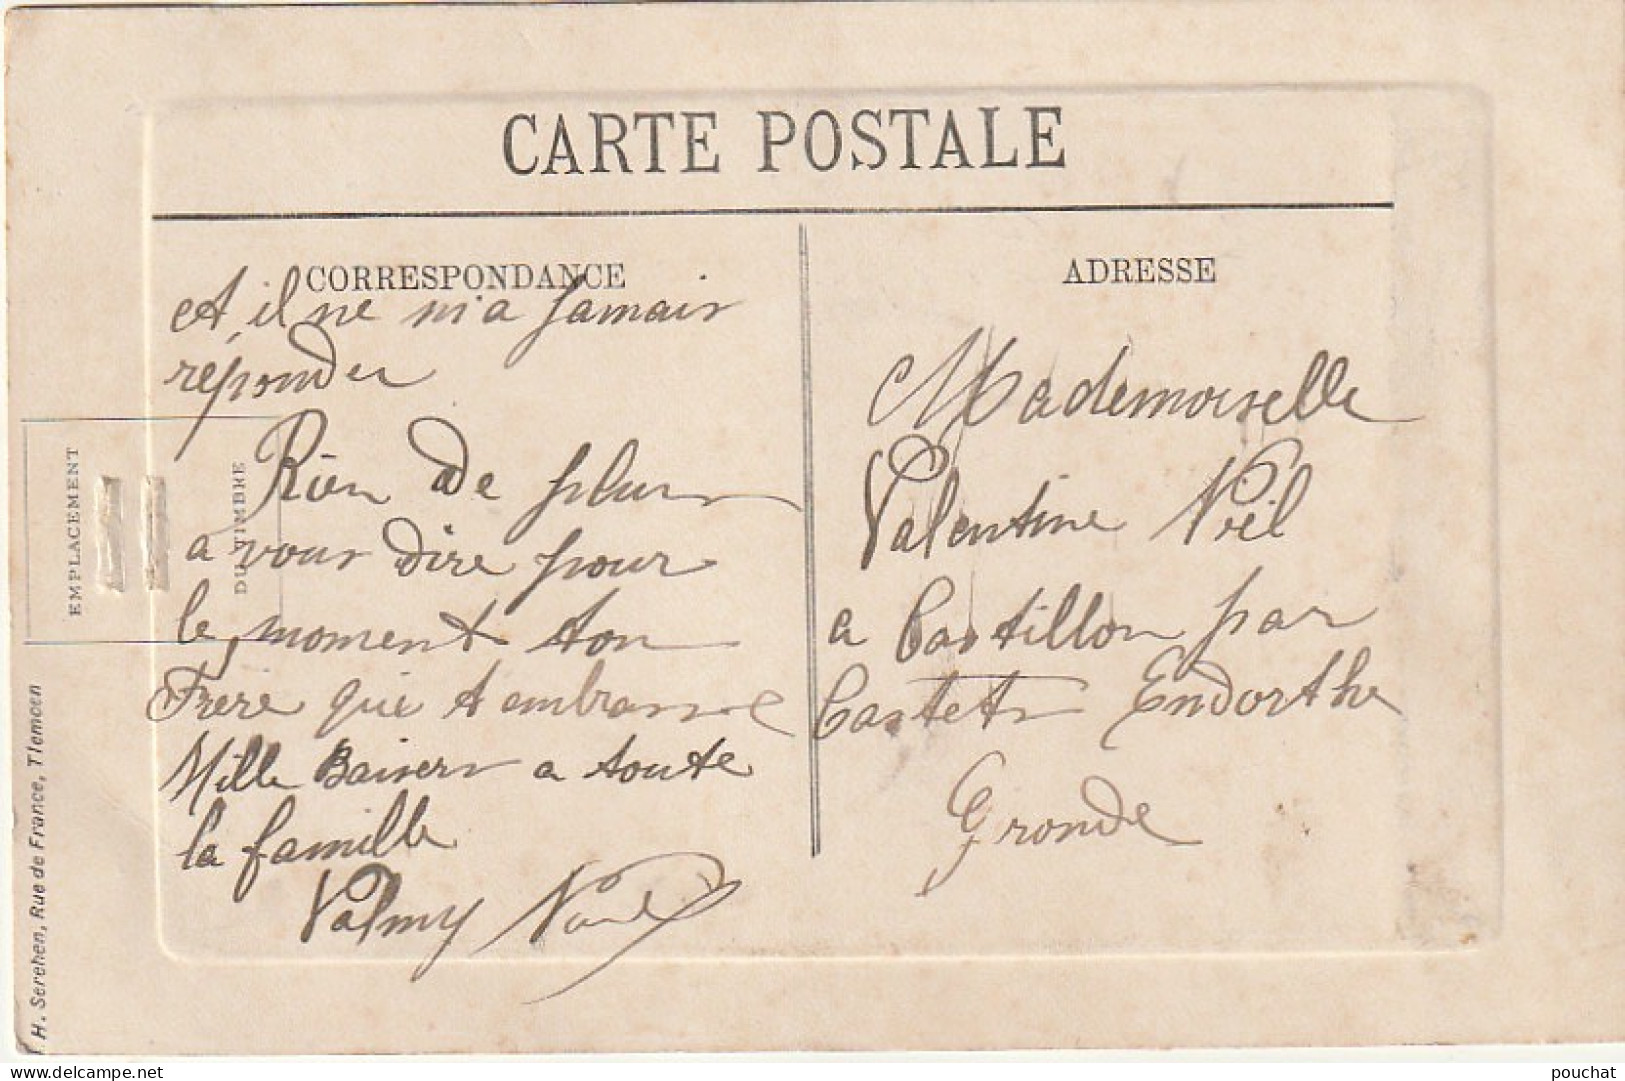 CARTE POSTALE
CORRESPONDANCE
et il ne m'a Jamais
réponder
Rien de plus
a vous dire pour
le moment ton
Frère qui t embrasse
Mille Baisers a toute
la famille
Valmy
ADRESSE
Mademoiselle
Valentine
a Castillon par
Castets Endorthe
Gironde
EMPLACEMENT
DU TIMBRE
H. Serehen, Rue de France, Tlemcen
delcampe.net
pouchat